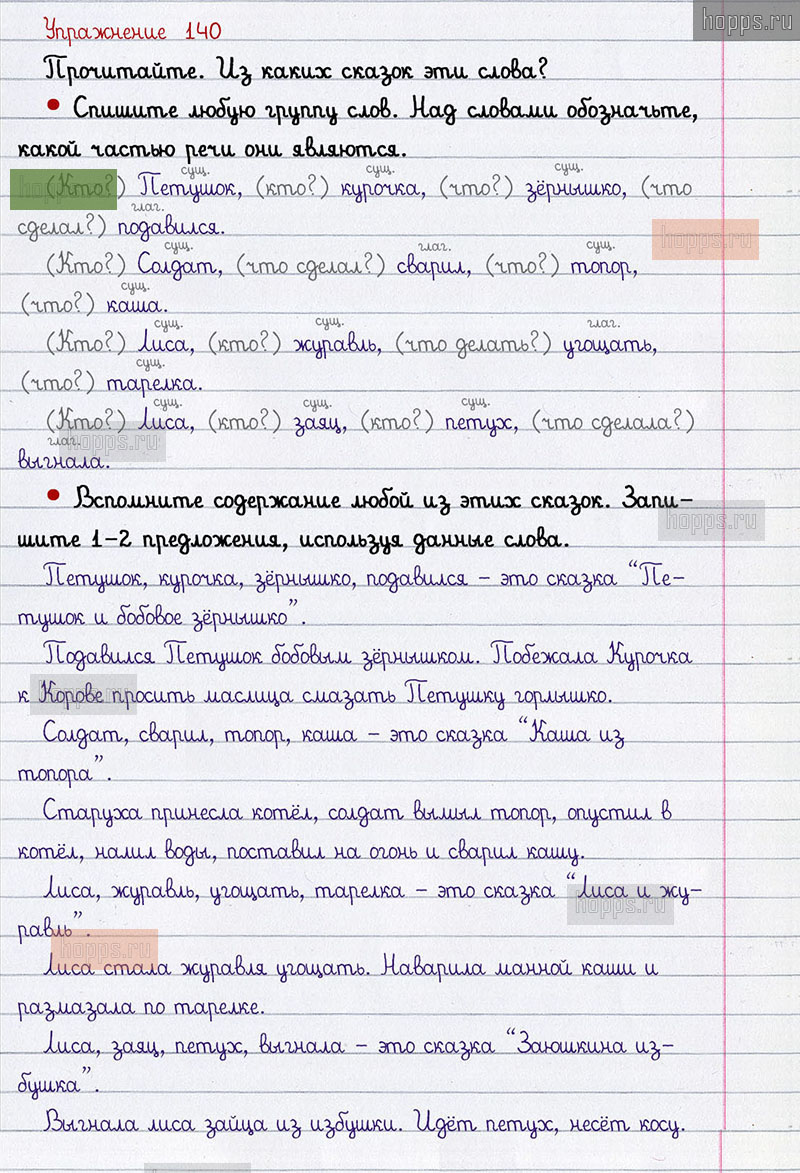 hopps.ru
Упражнение 140
Прочитайте. Из каких сказок эти слова?
• Спишите любую группу слов. Над словами обозначьте,
какой частью речи они являются.
сущ. сущ. сущ.
(Кто?) Петушок, (кто?) курочка, (что?) зёрнышко, (что
глаг.
сделал?) подавился.
hopps.ru
сущ. глаг. сущ.
(Кто?) Солдат, (что сделал?) сварил, (что?) топор,
сущ.
(что?) каша.
сущ. сущ. глаг.
(Кто?) Лиса, (кто?) журавль, (что делать?) угощать,
сущ.
(что?) тарелка.
сущ. сущ. сущ.
(Кто?) Лиса, (кто?) заяц, (кто?) петух, (что сделала?)
глаг.
hopps.ru
выгнала.
• Вспомните содержание любой из этих сказок. Запи-
hopps.ru
шите 1-2 предложения, используя данные слова.
Петушок, курочка, зёрнышко, подавился - это сказка “Пе-
тушок и бобовое зёрнышко”.
Подавился Петушок бобовым зёрнышком. Побежала Курочка
к Корове просить маслица смазать Петушку горлышко.
Солдат, сварил, топор, каша - это сказка “Каша из
топора”.
Старуха принесла котёл, солдат вымыл топор, опустил в
котёл, налил воды, поставил на огонь и сварил кашу.
Лиса, журавль, угощать, тарелка - это сказка “Лиса и жу-
hopps.ru
равль”.
hopps.ru
Лиса стала журавля угощать. Наварила манной каши и
размазала по тарелке.
Лиса, заяц, петух, выгнала - это сказка “Заюшкина из-
бушка”.
Выгнала лиса зайца из избушки. Идёт петух, несёт косу.